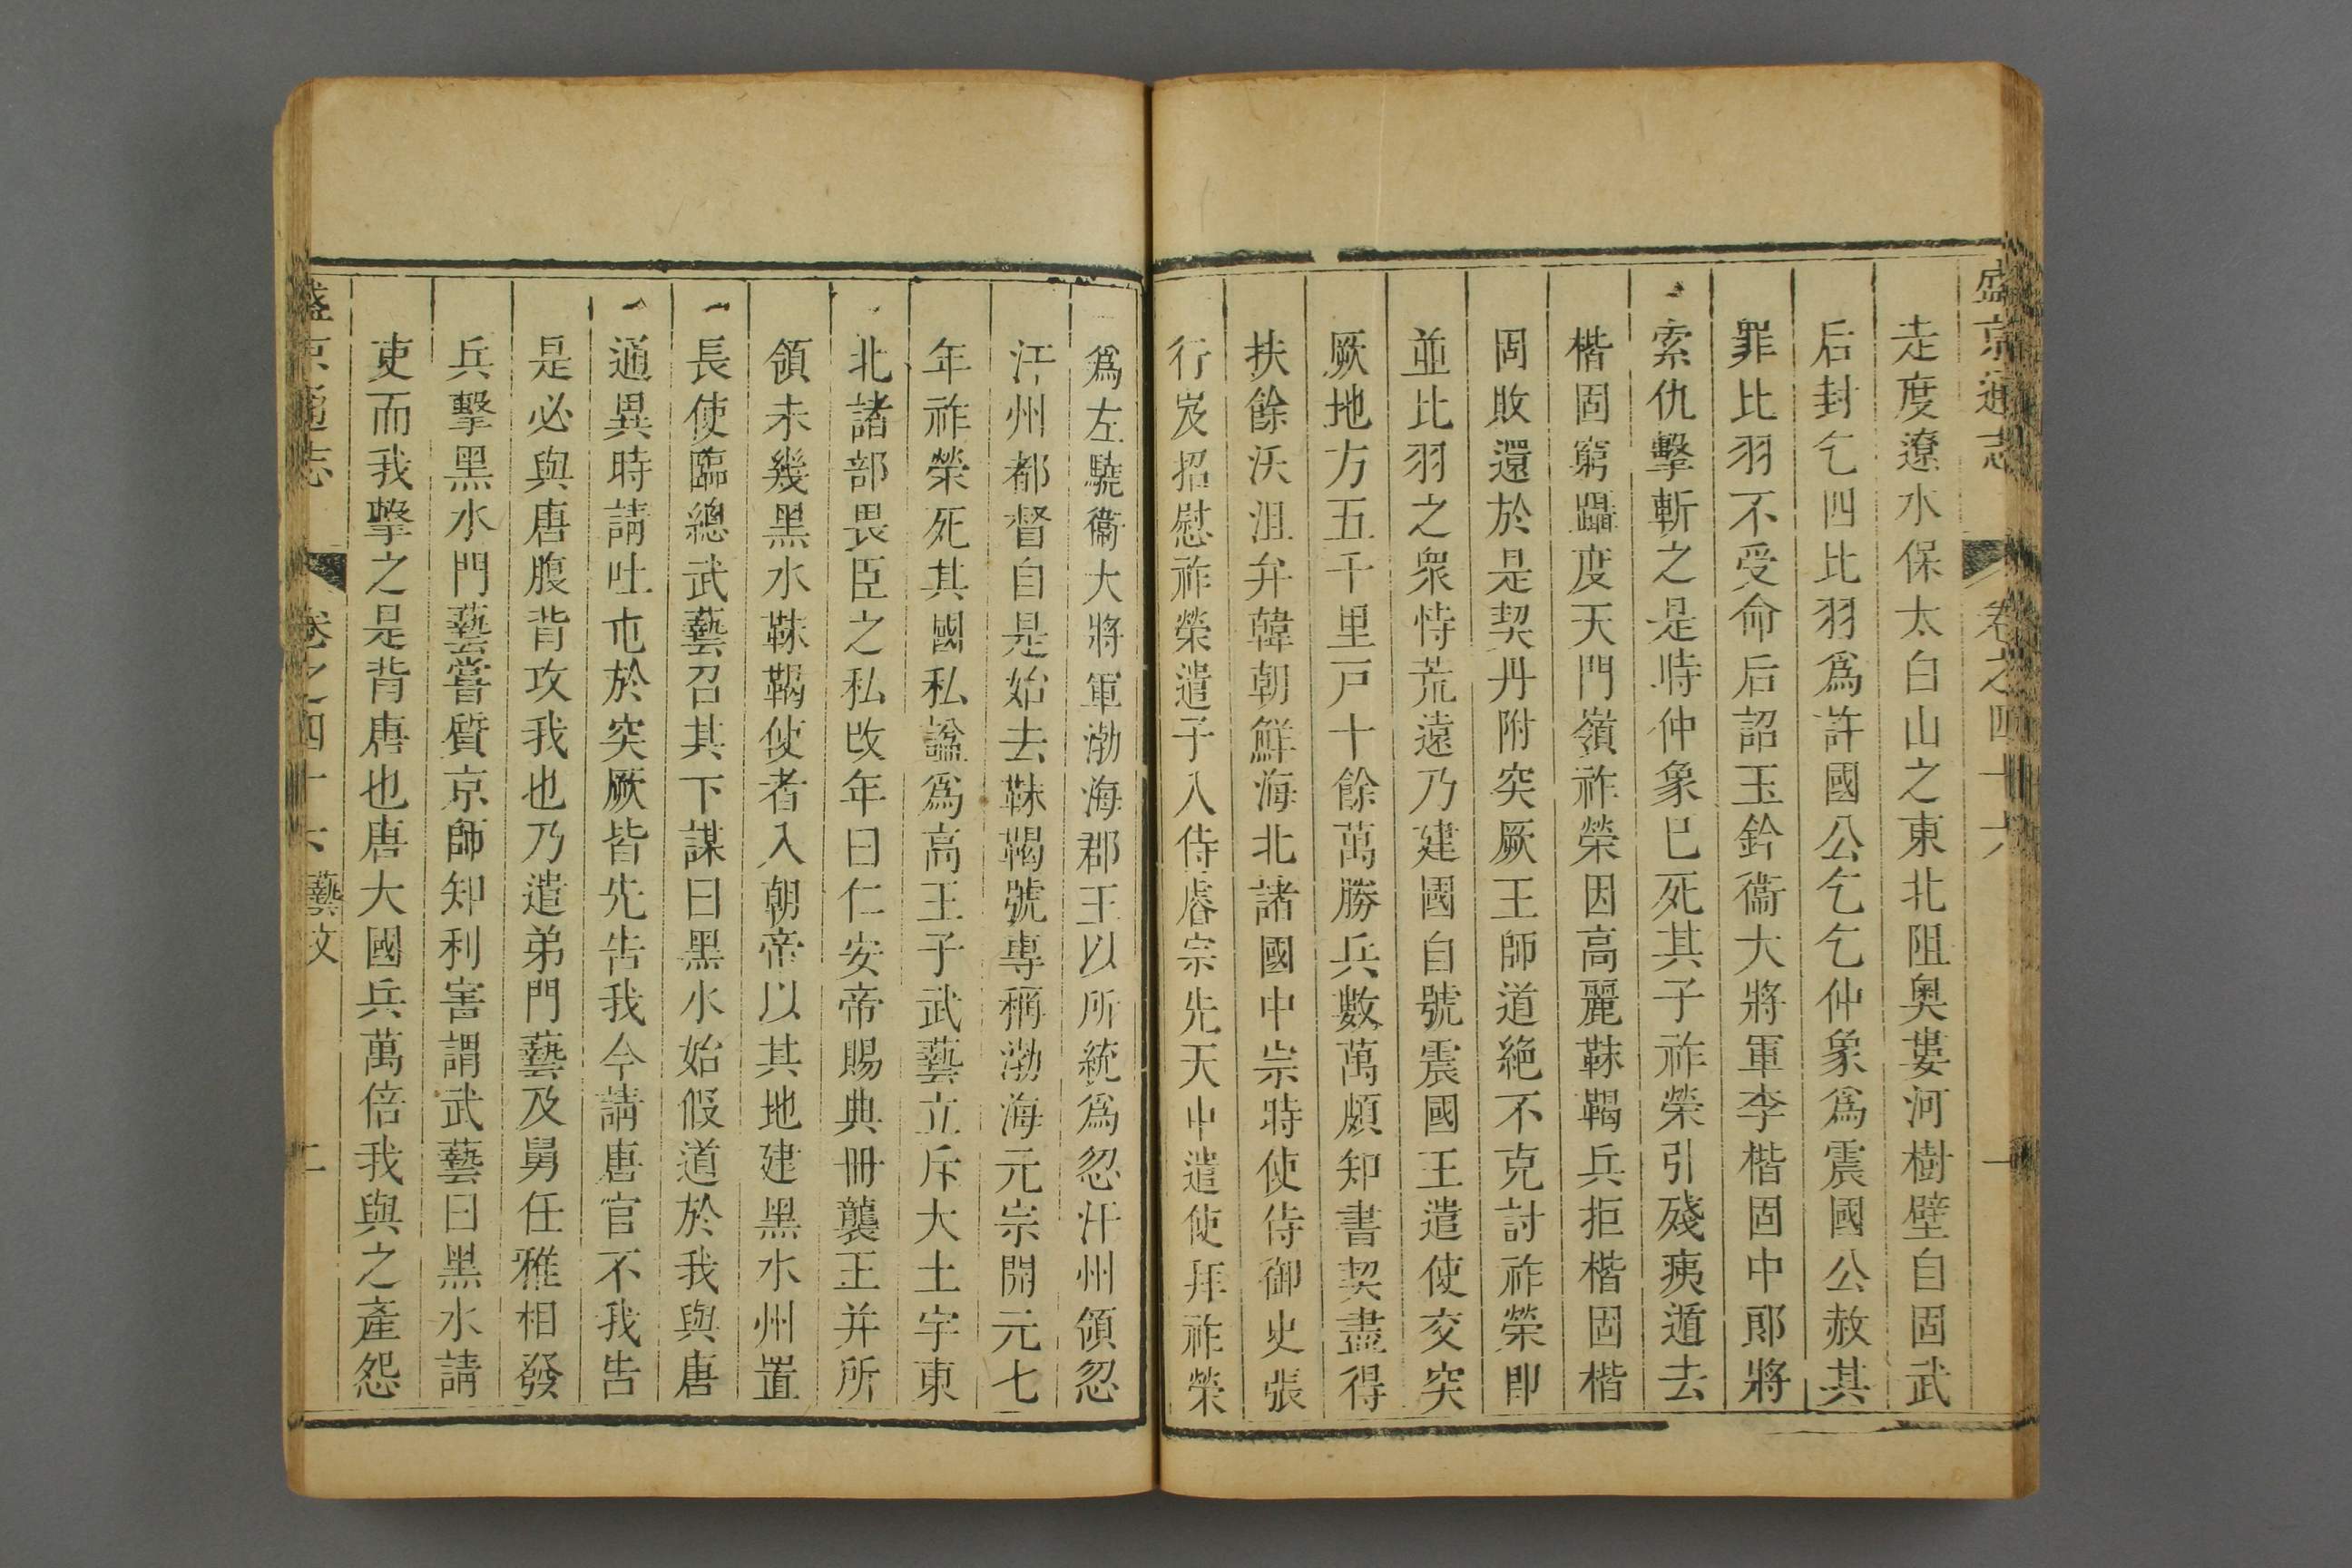 盛京通志 卷之四十六 一
走度遼水保太白山之東北阻奥婁河樹壁自固武
后封乞四比羽爲許國公乞乞仲象爲震國公赦其
罪比羽不受命后詔玉鈐衞大將軍李楷固中郎將
索仇擊斬之是時仲象已死其子祚榮引殘痍遁去
楷固窮躡度天門嶺祚榮因高麗靺鞨兵拒楷固楷
固敗還於是契丹附突厥王師道絶不克討祚榮即
並比羽之衆恃荒遠乃建國自號震國王遣使交突
厥地方五千里戸十餘萬勝兵數萬頗知書契盡得
扶餘沃沮弁韓朝鮮海北諸國中宗時使侍御史張
行岌招慰祚榮遣子入侍睿宗先天中遣使拜祚榮
爲左驍衞大將軍渤海郡王以所統爲忽汗州領忽
汗州都督自是始去靺鞨號專稱渤海元宗開元七
年祚榮死其國私諡爲高王子武藝立斥大土宇東
北諸部畏臣之私改年曰仁安帝賜典冊襲王并所
領未幾黑水靺鞨使者入朝帝以其地建黑水州置
長使臨總武藝召其下謀曰黑水始假道於我與唐
通異時請吐屯於突厥皆先告我今請唐官不我告
是必與唐腹背攻我也乃遣弟門藝及舅任雅相發
兵擊黑水門藝嘗質京師知利害謂武藝曰黑水請
吏而我擊之是背唐也唐大國兵萬倍我與之產怨
盛京通志 卷之四十六 藝文 二